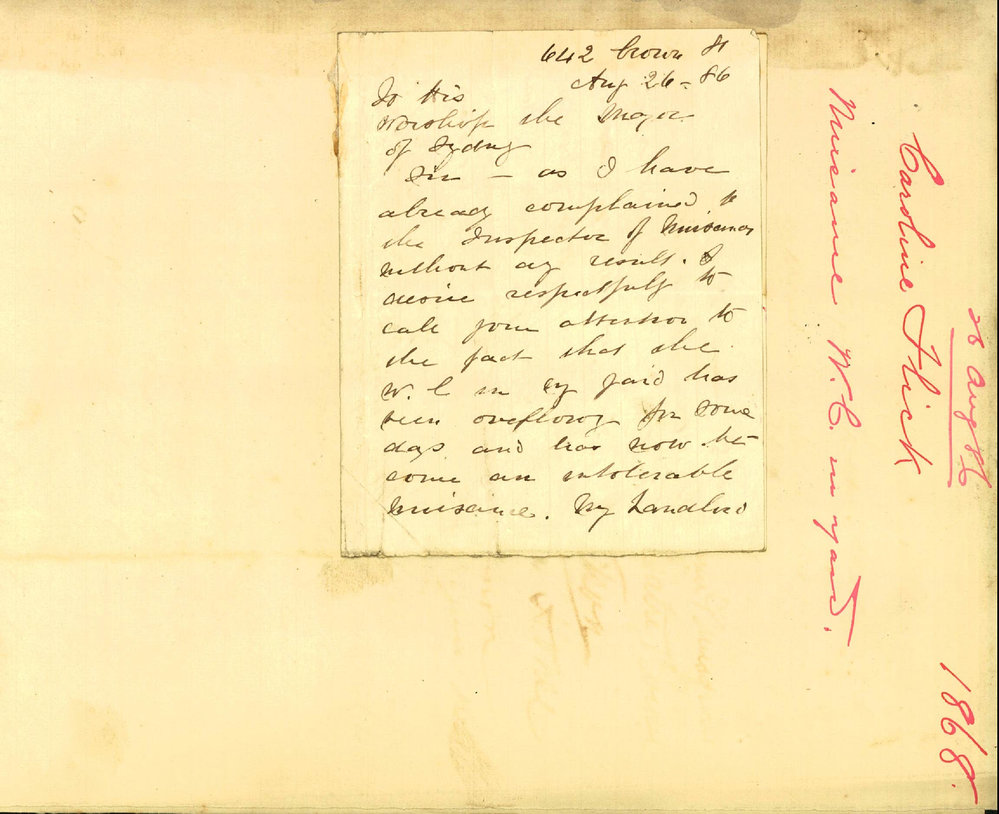 642 Crown St
Aug 26 - 86
To His
Worship the Mayor
of Sydney
Sir – as I have
already complained to
the Inspector of Nuisances
without any result. I
desire respectfully to
call your attention to
the fact that the
W.C in my yard has
been overflowing for some
days and has now be-
come an intolerable
nuisance. My Landlord
26 Aug 86
Caroline Flick
Nuisance W.C. in yard.
1868.